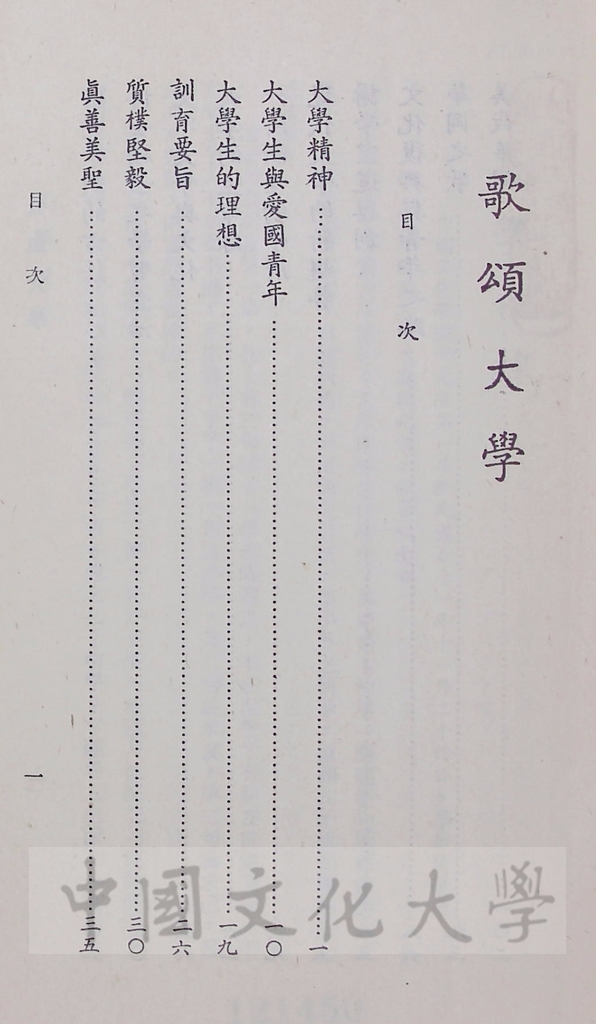 歌頌大學
目次
大學精神………一
大學生與愛國青年………一〇
大學生的理想………一九
訓育要旨………二六
質樸堅毅………三〇
眞善美聖………三五
目次
一
中國文化大學